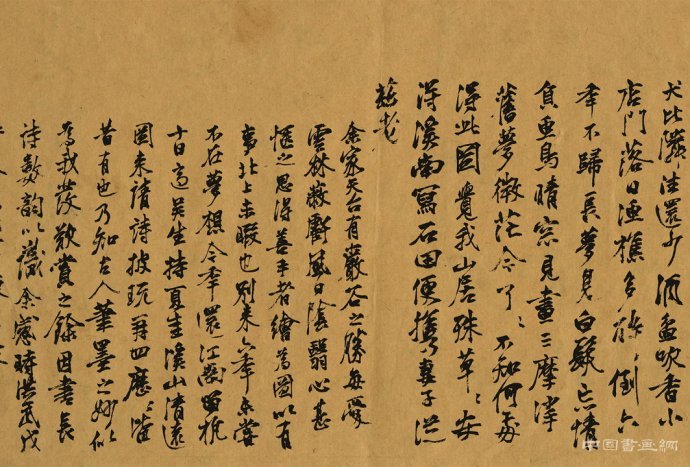 犬比鄰往還少酒盃吹香小
店門落日漁樵多醉倒六
年不歸長夢見白髮忘情
負魚鳥晴窓見畫三摩挲
舊夢微茫今了了不知何處
得此圖覺我山居殊草草安
得溪南寫石田便攜妻子從
楚老
余家天台有巖石之勝每愛
雲林巖壑風日陰翳心甚
愜之思得善手者繪為圖以有
事北上未暇也別來六年未嘗
不在夢想今年還江蜀田枕
十日適吳生持夏圭溪山清遠
圖来請詩披玩再四歷歷皆
昔有也乃知古人筆墨之妙似
為我發歎賞之餘因書長
詩數韵以識余歲時洪武戊
中国書画網